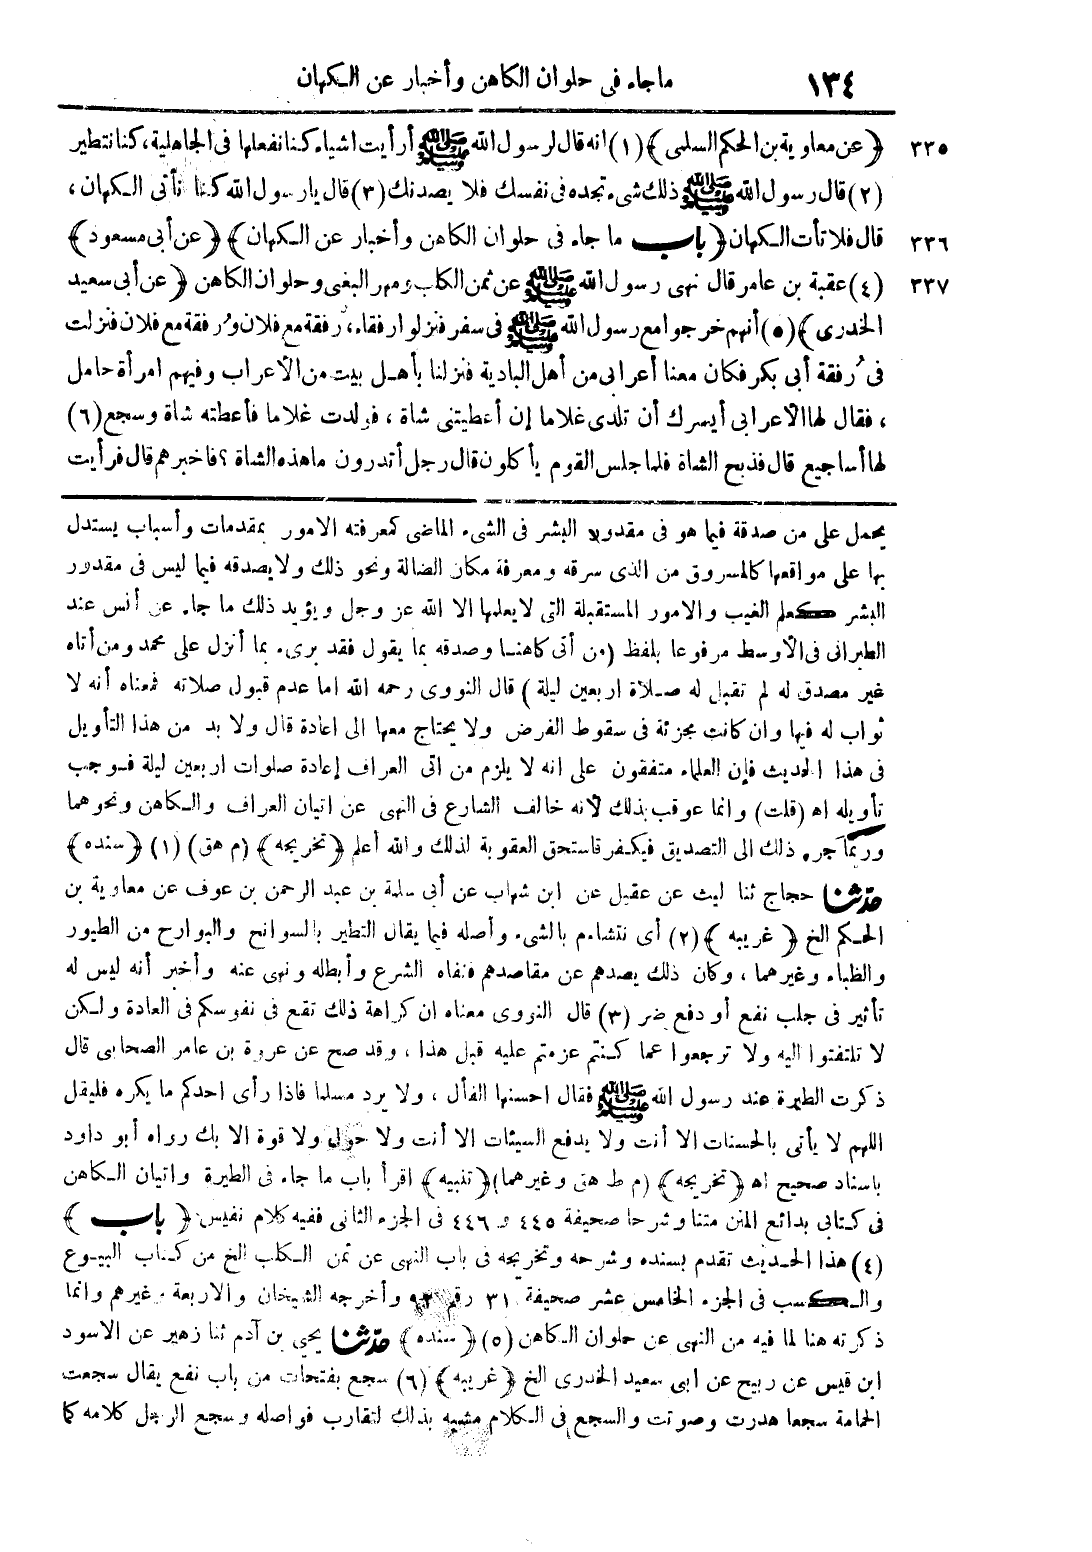 ١٣٤ ماجاء فى حلوان الكاهن وأخبار عن الكهان
٣٣٥ ﴿ عن معاوية بن الحكم السلمى ﴾ (١) انه قال لرسول الله ﷺ أرأيت اشياء كنا نفعلها فى الجاهلية، كنا نتطير
(٢) قال رسول الله ﷺ ذلك شىء تجده فى نفسك فلا يصدنك (٣) قال يارسول الله كنا نأتى الكهان،
٣٣٦ قال فلا تأت الكهان ﴿ باب ما جاء فى حلوان الكاهن وأخبار عن الكهان ﴾ ﴿ عن أبى مسعود ﴾
٣٣٧ (٤) عقبة بن عامر قال نهى رسول الله ﷺ عن ثمن الكلب ومهر البغى وحلوان الكاهن ﴿ عن أبى سعيد
الخدرى ﴾ (٥) أنهم خرجوا مع رسول الله ﷺ فى سفر فنزلوا رفقاء، رفقة مع فلان ورُفقة مع فلان فنزلت
فى رُفقة أبى بكر فكان معنا أعرابى من أهل البادية فنزلنا بأهل بيت من الأعراب وفيهم امرأة حامل
، فقال لها الأعرابى أيسرك أن تلدى غلاما إن أعطيتنى شاة ، فولدت غلاما فأعطته شاة وسجع (٦)
لها أساجيع قال فذبح الشاة فلما جلس القوم يأكلون قال رجل أتدرون ماهذه الشاة ؟ فاخبرهم قال فرأيت
يحمل على من صدقة فيما هو فى مقدور البشر فى الشىء الماضى كمعرفته الامور بمقدمات وأسباب يستدل
بها على مواقعها كالمسروق من الذى سرقه ومعرفة مكان الضالة ونحو ذلك ولا يصدقه فيما ليس فى مقدور
البشر كعلم الغيب والامور المستقبلة التى لايعلمها الا الله عز وجل ويؤيد ذلك ما جاء عن أنس عند
الطبرانى فى الأوسط مرفوعا بلفظ (من أتى كاهنا وصدقه بما يقول فقد برىء بما أنزل على محمد ومن أتاه
غير مصدق له لم تقبل له صلاة اربعين ليلة) قال النووى رحمه الله اما عدم قبول صلاته فمعناه أنه لا
ثواب له فيها وان كانت مجزئة فى سقوط الفرض ولا يحتاج معها الى اعادة قال ولا بد من هذا التأويل
فى هذا الحديث فإن العلماء متفقون على انه لا يلزم من اتى العراف إعادة صلوات اربعين ليلة فوجب
تأويله اه (قلت) وانما عوقب بذلك لأنه خالف الشارع فى النهى عن اتيان العراف والكاهن ونحوهما
وربما جره ذلك الى التصديق فيكفر فاستحق العقوبة لذلك والله أعلم ﴿ تخريجه ﴾ (م هق) (١) ﴿ سنده ﴾
حدّثنا حجاج ثنا ليث عن عقيل عن ابن شهاب عن أبى سلمة بن عبد الرحمن بن عوف عن معاوية بن
الحكم الخ ﴿ غريبه ﴾ (٢) أى نتشاءم بالشىء وأصله فيما يقال التطير بالسوانح والبوارح من الطيور
والظباء وغيرهما ، وكان ذلك يصدهم عن مقاصدهم فنفاه الشرع وأبطله ونهى عنه وأخبر أنه ليس له
تأثير فى جلب نفع أو دفع ضر (٣) قال النووى معناه ان كراهة ذلك تقع فى نفوسكم فى العادة ولكن
لا تلتفتوا اليه ولا ترجعوا عما كنتم عزمتم عليه قبل هذا ، وقد صح عن عروة بن عامر الصحابى قال
ذكرت الطيرة عند رسول الله ﷺ فقال احسنها الفأل ، ولا يرد مسلما فاذا رأى احدكم ما يكره فليقل
اللهم لا يأتى بالحسنات الا أنت ولا يدفع السيئات الا أنت ولا حول ولا قوة الا بك رواه أبو داود
باسناد صحيح اه ﴿ تخريجه ﴾ (م ط هق وغيرهما) ﴿ تنبيه ﴾ اقرأ باب ما جاء فى الطيرة واتيان الكاهن
فى كتابى بدائع المنن متنا وشرحا صحيفة ٤٤٥ و ٤٤٦ فى الجزء الثانى ففيه كلام نفيس ﴿ باب ﴾
(٤) هذا الحديث تقدم بسنده وشرحه وتخريجه فى باب النهى عن ثمن الكلب الخ من كتاب البيوع
والكسب فى الجزء الخامس عشر صحيفة ٣١ رقم وأخرجه الشيخان والاربعة وغيرهم وانما
ذكرته هنا لما فيه من النهى عن حلوان الكاهن (٥) ﴿ سنده ﴾ حدّثنا يحيى بن آدم ثنا زهير عن الاسود
ابن قيس عن ربيح عن ابى سعيد الخدرى الخ ﴿ غريبه ﴾ (٦) سجع بفتحات من باب نفع يقال سجعت
الحمامة سجعا هدرت وصوتت والسجع فى الكلام مشبه بذلك لتقارب فواصله وسجع الرجل كلامه كما